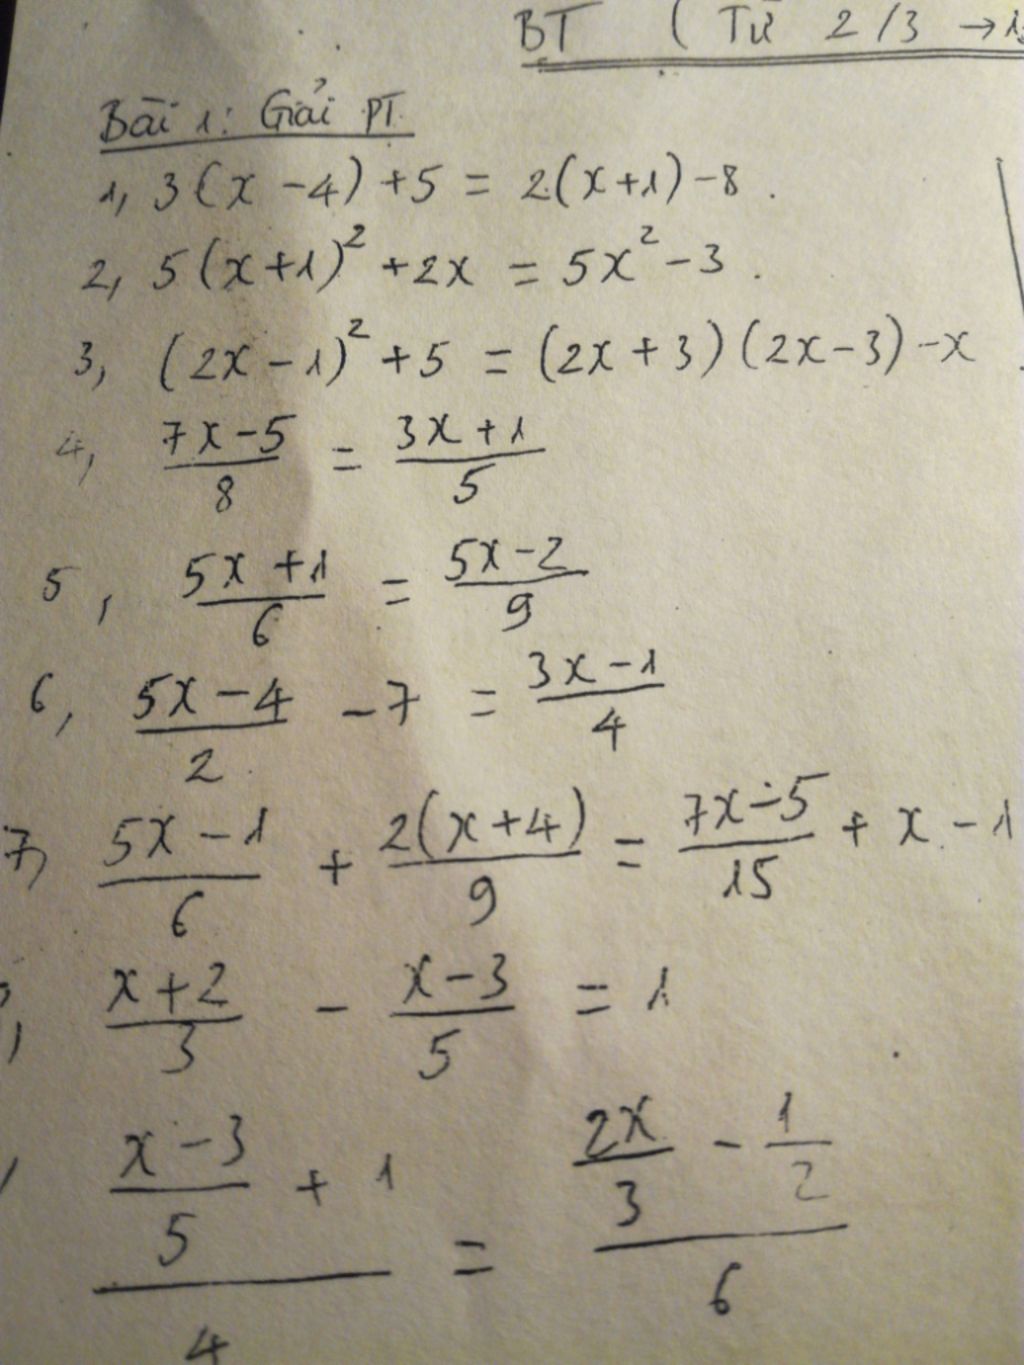 BT ( Từ 2/3 →1
Bài 1: Giải PT
1, 3(x - 4) + 5 = 2(x+1) - 8.
2, 5(x+1)² + 2x = 5x² - 3.
3, (2x - 1)² + 5 = (2x + 3)(2x - 3) - x
4, (7x - 5)/8 = (3x + 1)/5
5, (5x + 1)/6 = (5x - 2)/9
6, (5x - 4)/2 - 7 = (3x - 1)/4
7, (5x - 1)/6 + 2(x+4)/9 = (7x - 5)/15 + x - 1
, (x+2)/3 - (x-3)/5 = 1
, ((x-3)/5 + 1)/4 = (2x/3 - 1/2)/6